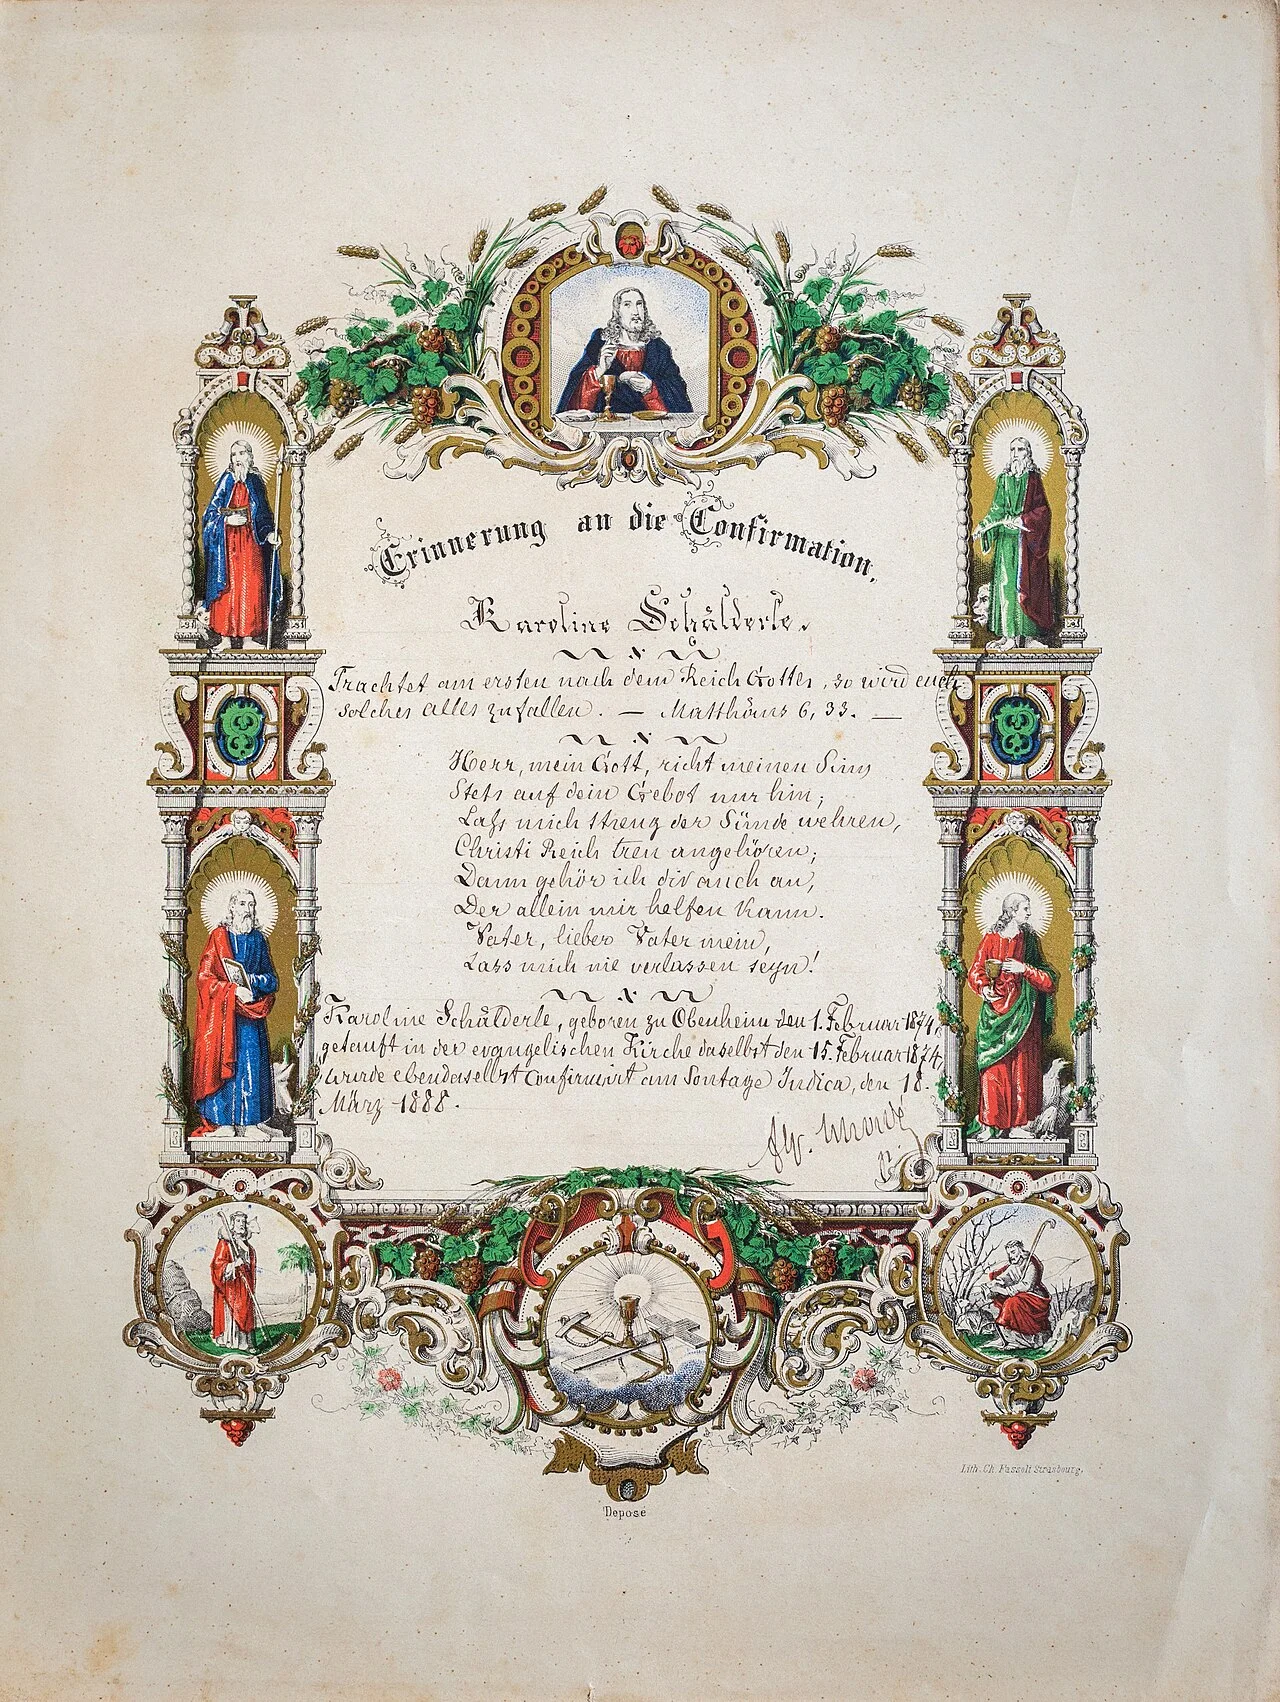 Erinnerung an die Confirmation,
Karoline Schälderle.
Trachtet am ersten nach dem Reich Gottes, so wird euch
solches alles zufallen. — Matthäus 6, 33. —
Herr, mein Gott, richt meinen Sinn
Stets auf dein Gebot nur hin;
Laß mich streng der Sünde wehren,
Christi Reich treu angehören;
Dann gehör ich dir auch an,
Der allein mir helfen kann.
Vater, lieber Vater mein,
Lass mich nie verlassen seyn!
Karoline Schälderle, geboren zu Obenheim den 1. Februar 1874,
getauft in der evangelischen Kirche daselbst den 15. Februar 1874,
wurde ebendaselbst confirmirt am Sontage Judica, den 18.
März 1888.
Lith. Ch. Fassoli Strasbourg.
Déposé